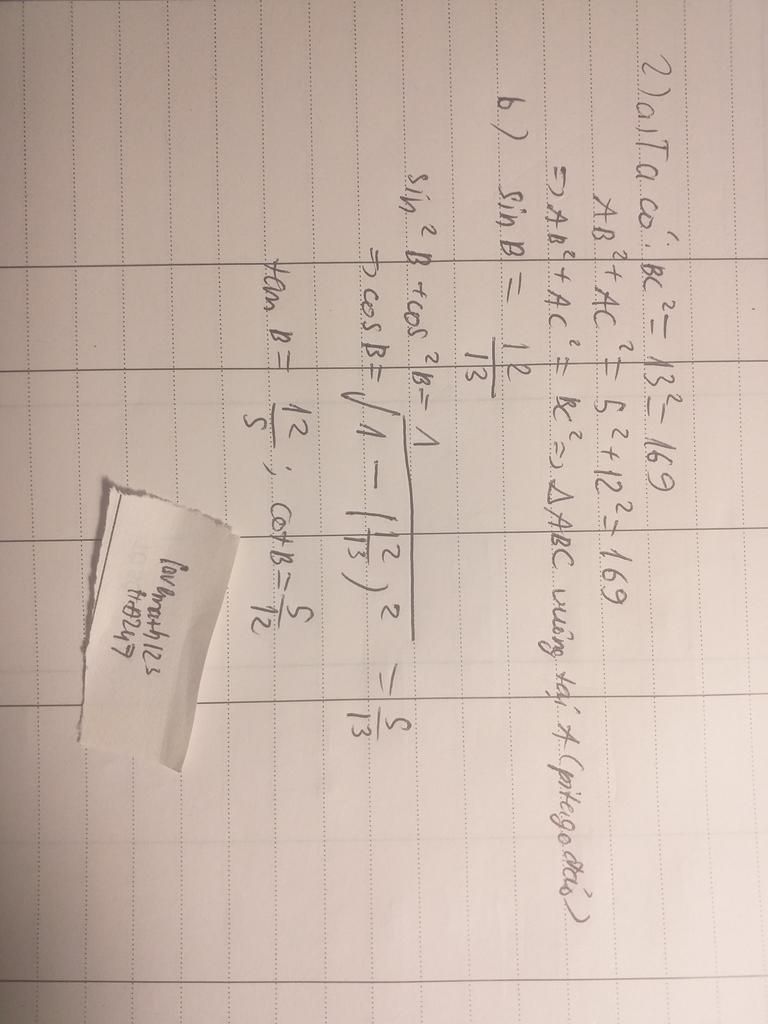 2) a) Ta có: BC² = 13² = 169
AB² + AC² = 5² + 12² = 169
=> AB² + AC² = BC² => △ABC vuông tại A (pitago đảo)
b.) sin B = 12/13
sin² B + cos² B = 1
=> cos B = √(1 - (12/13)²) = 5/13
tan B = 12/5 ; cot B = 5/12
lovemath123